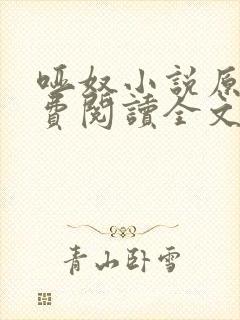 哑奴小说原
費閱讀全文
青山卧雪